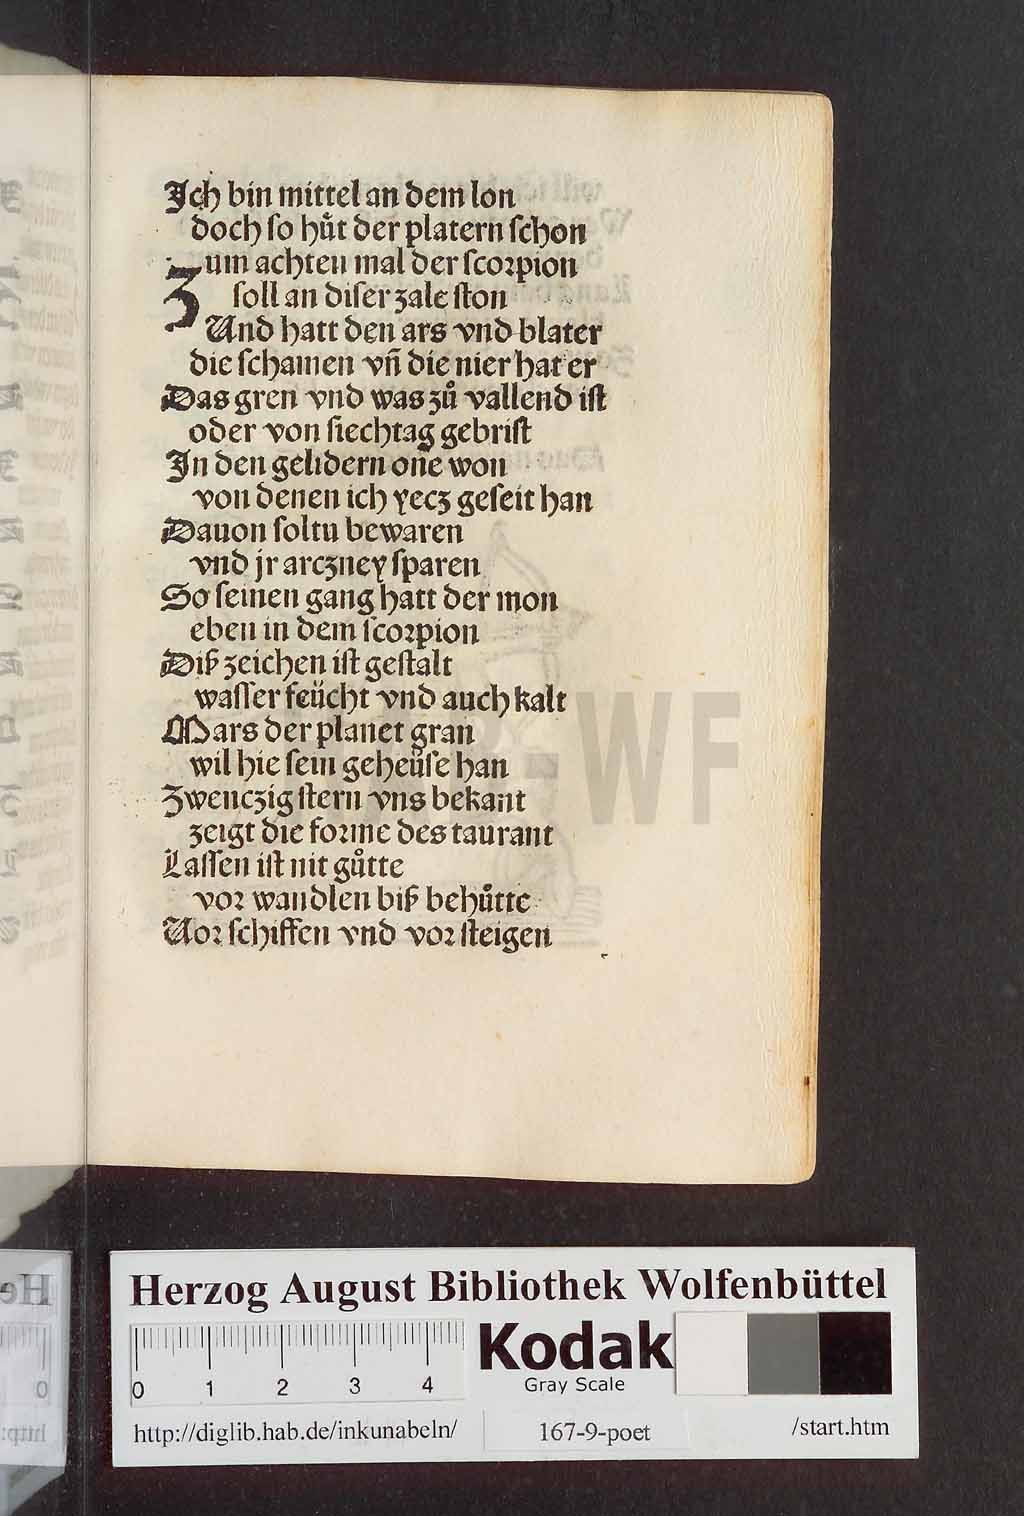 Ich bin mittel an dem lon
doch so huͦt der platern schon
Zum achten mal der scorpion
soll an diser zale ston
Und hatt den ars vnd blater
die schamen vn̄ die nier hat er
Das gren vnd was zuͦ vallend ist
oder von siechtag gebrist
In den gelidern one won
von denen ich yecz geseit han
Dauon soltu bewaren
vnd jr arczney sparen
So seinen gang hatt der mon
eben in dem scorpion
Diß zeichen ist gestalt
wasser feücht vnd auch kalt
Mars der planet gran
wil hie sein geheüse han
Zwenczig stern vns bekant
zeigt die forme des taurant
Lassen ist nit guͦtte
vor wandlen biß behuͦtte
Vor schiffen vnd vor steigen
HAB-WF
Herzog August Bibliothek Wolfenbüttel
Kodak
Gray Scale
0 1 2 3 4
http://diglib.hab.de/inkunabeln/ 167-9-poet /start.htm